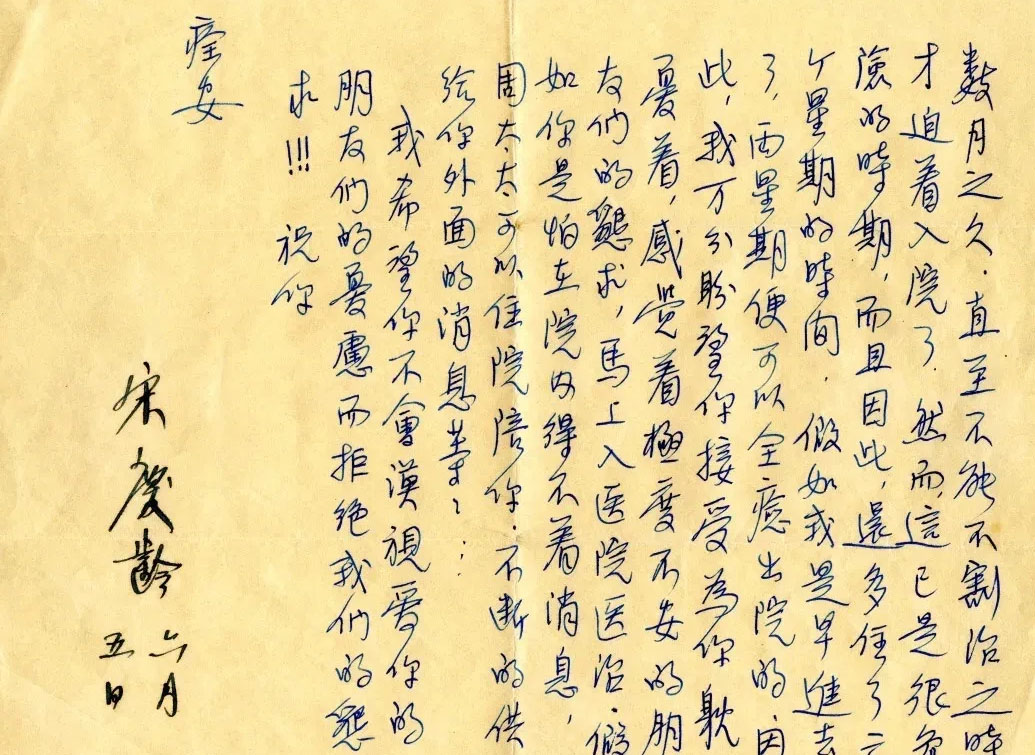 数月之久.直至不能不割治之時
才迫着入院了.然而這已是很危
險的時期,而且因此,還多住了二
个星期的時间.假如我是早進去
了,两星期便可以全癒出院的.因
此,我万分盼望你接受為你躭
憂着,感觉着極度不安的朋
友们的懇求,馬上入医院医治.假
如你是怕在院内得不着消息,
周太太可以住院陪你.不断的供
给你外面的消息等等……
我希望你不會漠視爱你的
朋友们的憂慮而拒绝我们的懇
求!!! 祝你
痊安
宋慶齡
六月
五日